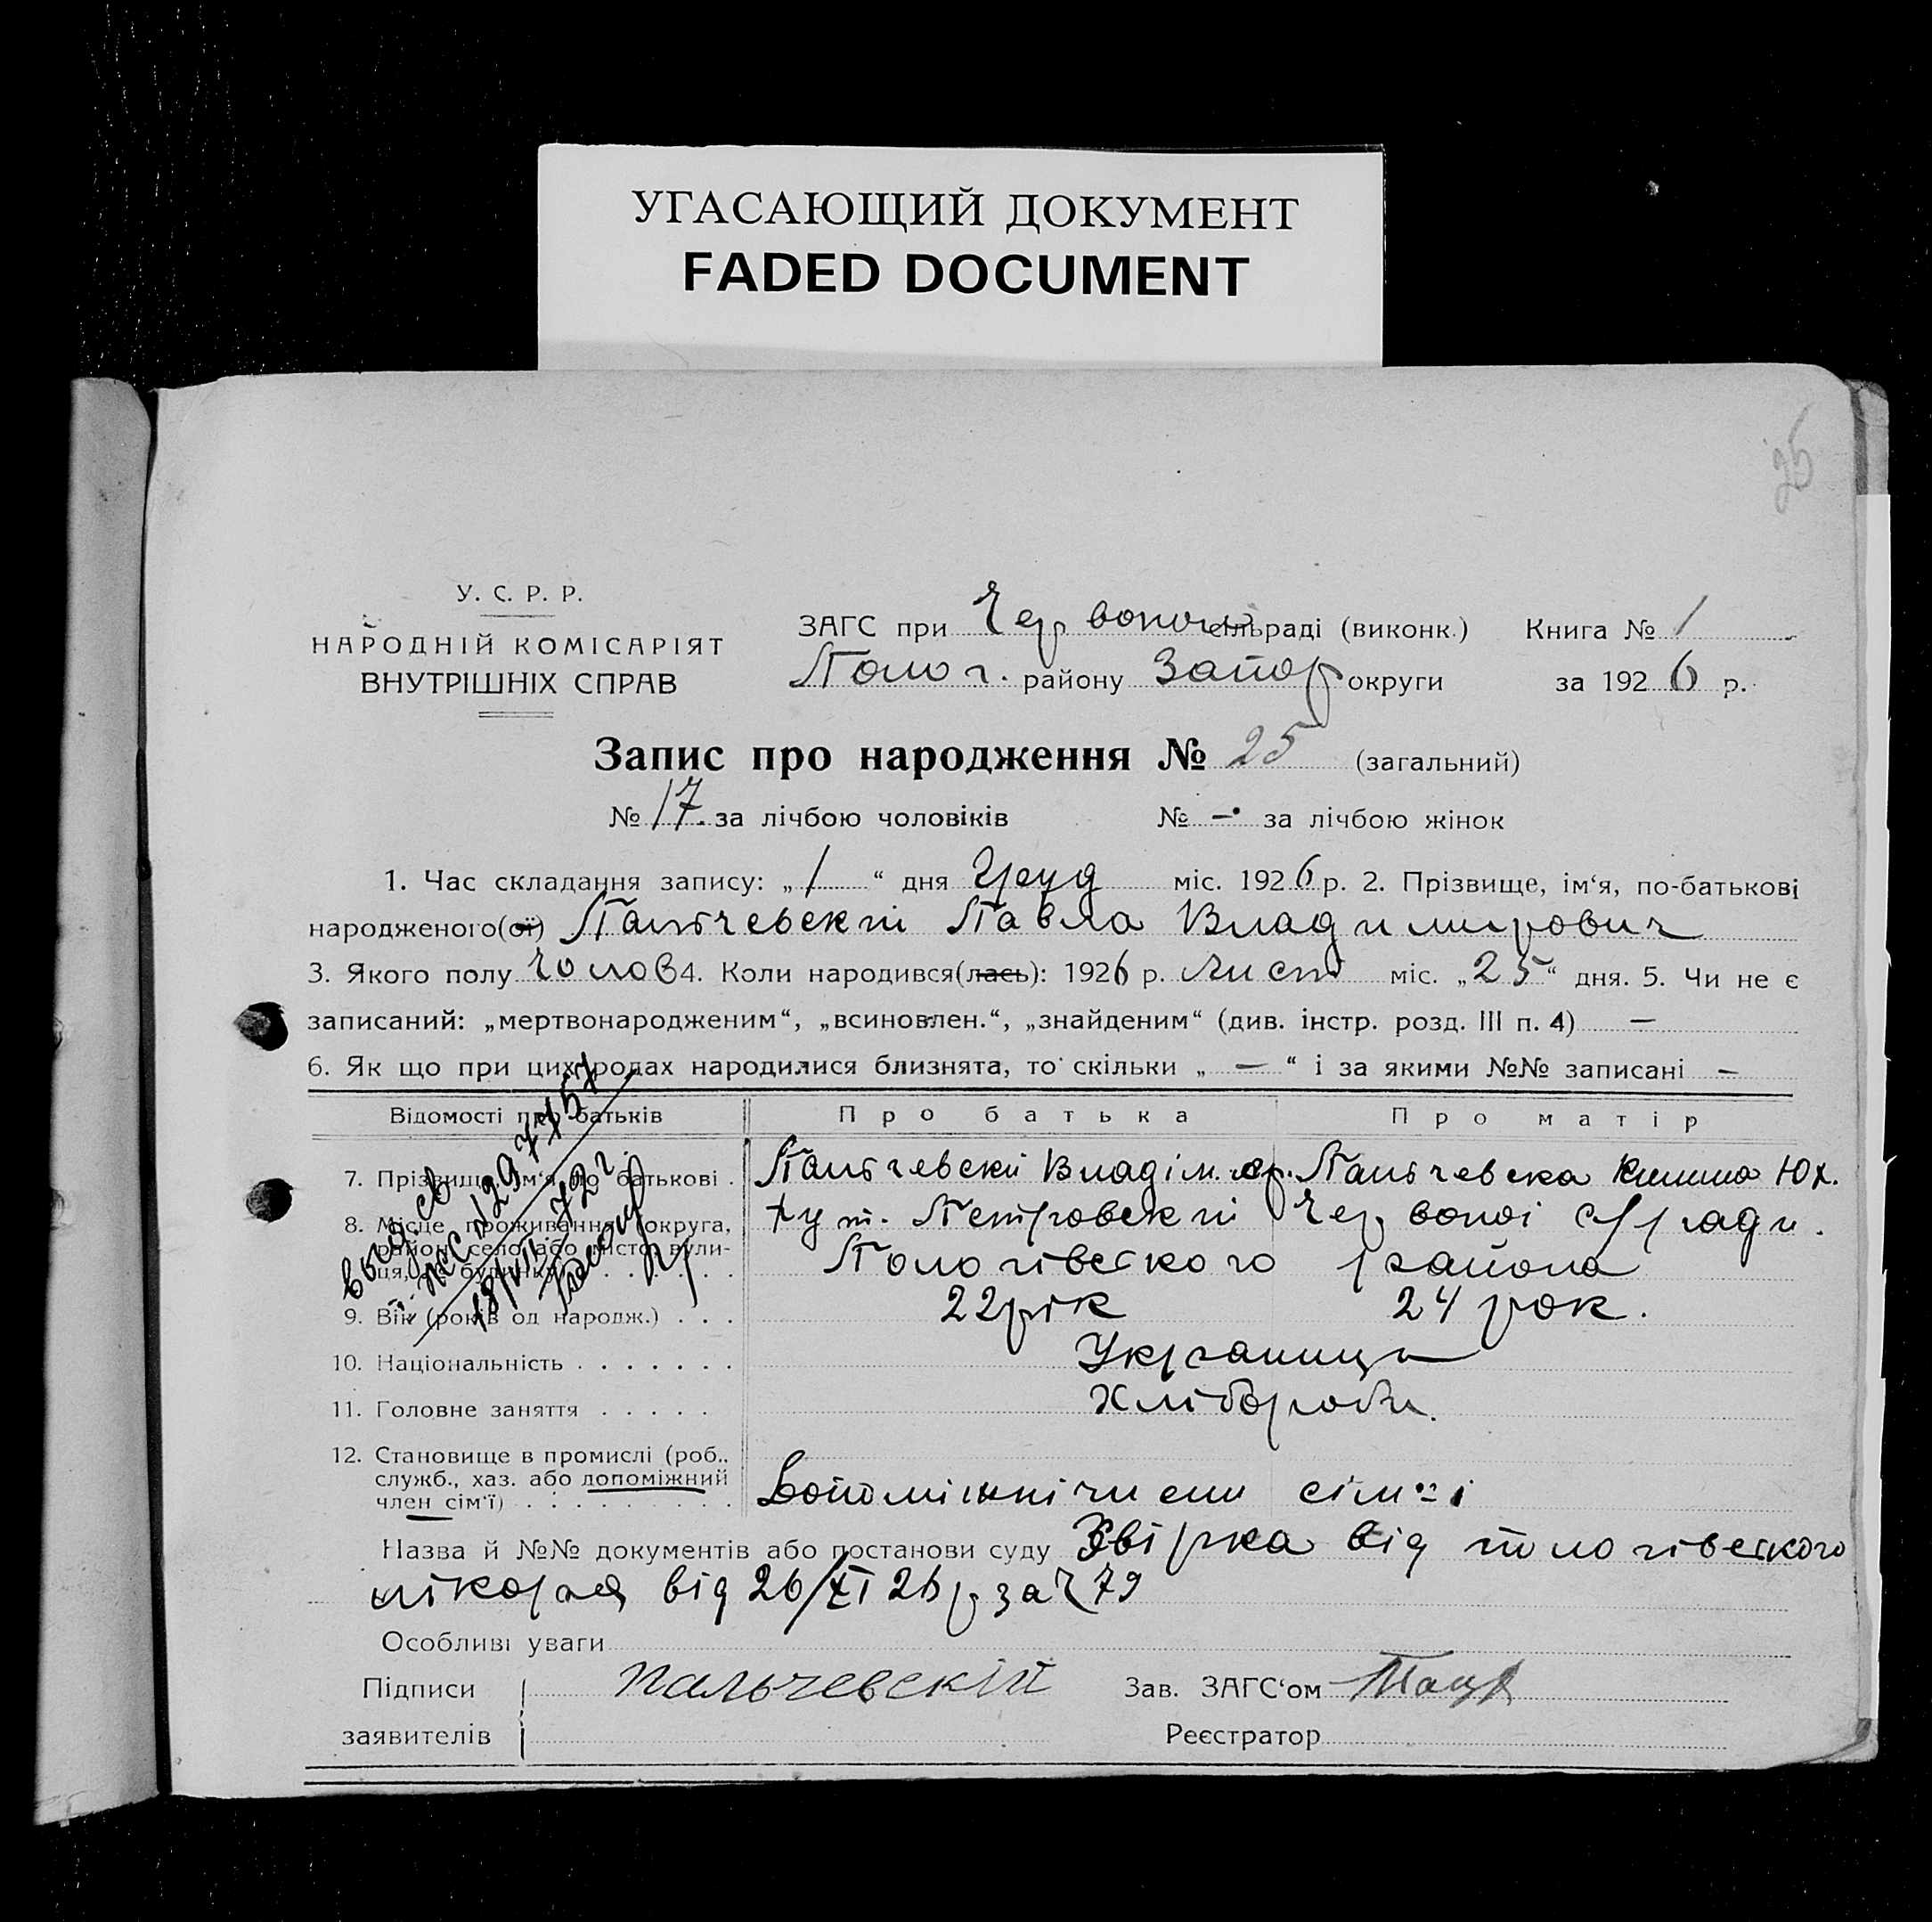 УГАСАЮЩИЙ ДОКУМЕНТ
FADED DOCUMENT
25
У. С. Р. Р.
НАРОДНІЙ КОМІСАРІЯТ
ВНУТРІШНІХ СПРАВ
ЗАГС при Червоной сільраді (виконк.) Книга № 1
Полог. району Запор округи за 1926 р.
Запис про народження № 25 (загальний)
№ 17. за лічбою чоловіків № — за лічбою жінок
1. Час складання запису: „1“ дня Груд міс. 1926 р. 2. Прізвище, ім‘я, по-батькові
народженого(ої) Пальчевский Павла Владимирович
3. Якого полу Чолов 4. Коли народився(лась): 1926 р. Лист міс. „25“ дня. 5. Чи не є
записаний: „мертвонародженим“, „всиновлен.“, „знайденим“ (див. інстр. розд. III п. 4) —
6. Як що при цих родах народилися близнята, то скільки „ — “ і за якими №№ записані —
Відомості про батьків Про батька Про матір
7. Прізвище, ім‘я, по батькові . Пальчевский Владім. Пальчевска Юх.
8. Місце проживання (округа, район, село або місто, вулиця, № будинку) хут. Петровский Червоної с/ради.
Пологівского района
9. Вік (років од народж.) . . . 22 рік 24 рок.
10. Національність . . . . . . . Украинци
11. Головне заняття . . . . . Хлібороби.
12. Становище в промислі (роб.,
служб., хаз. або допоміжний
член сім‘ї) . . . . . . . . . Допоміжні члени сімї
Назва й №№ документів або постанови суду від пологівского
лікаря від 26/XI 26 р за Ч 79
Особливі уваги
Підписи Пальчевскій Зав. ЗАГС‘ом
заявителів Реєстратор